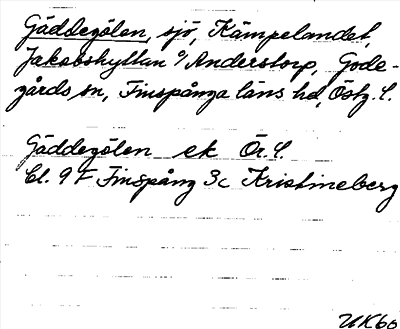 Gäddegölen, sjö, Kämpelandet,
Jakobshyttan o/Anderstorp, Gode-
gårds sn, Finspånga läns hd, Östg. l.
Gäddegölen ek Ör. l.
Bl. 9 F Finspång 3c Kristineberg
UK60